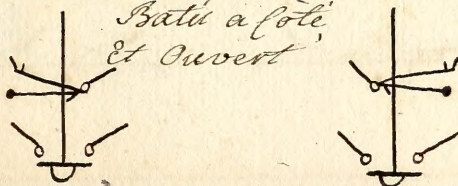 Batu a Côté
et Ouvert